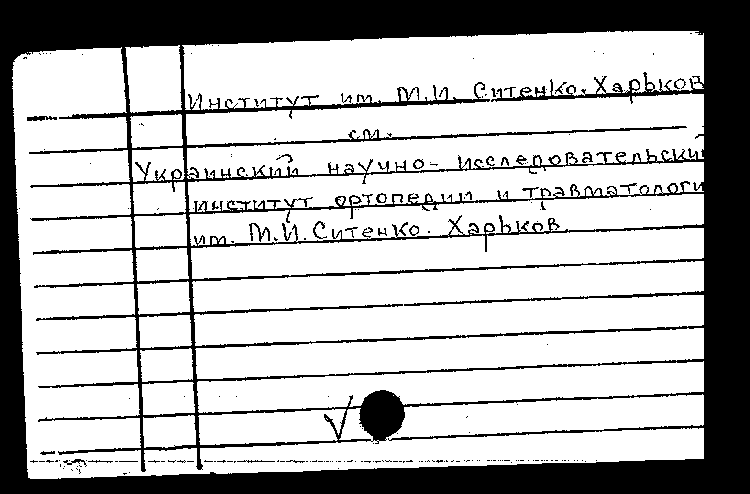 Институт им. М.И. Ситенко. Харьков
см.
Украинский научно-исследовательский
институт ортопедии и травматологи
им. М.И. Ситенко. Харьков.